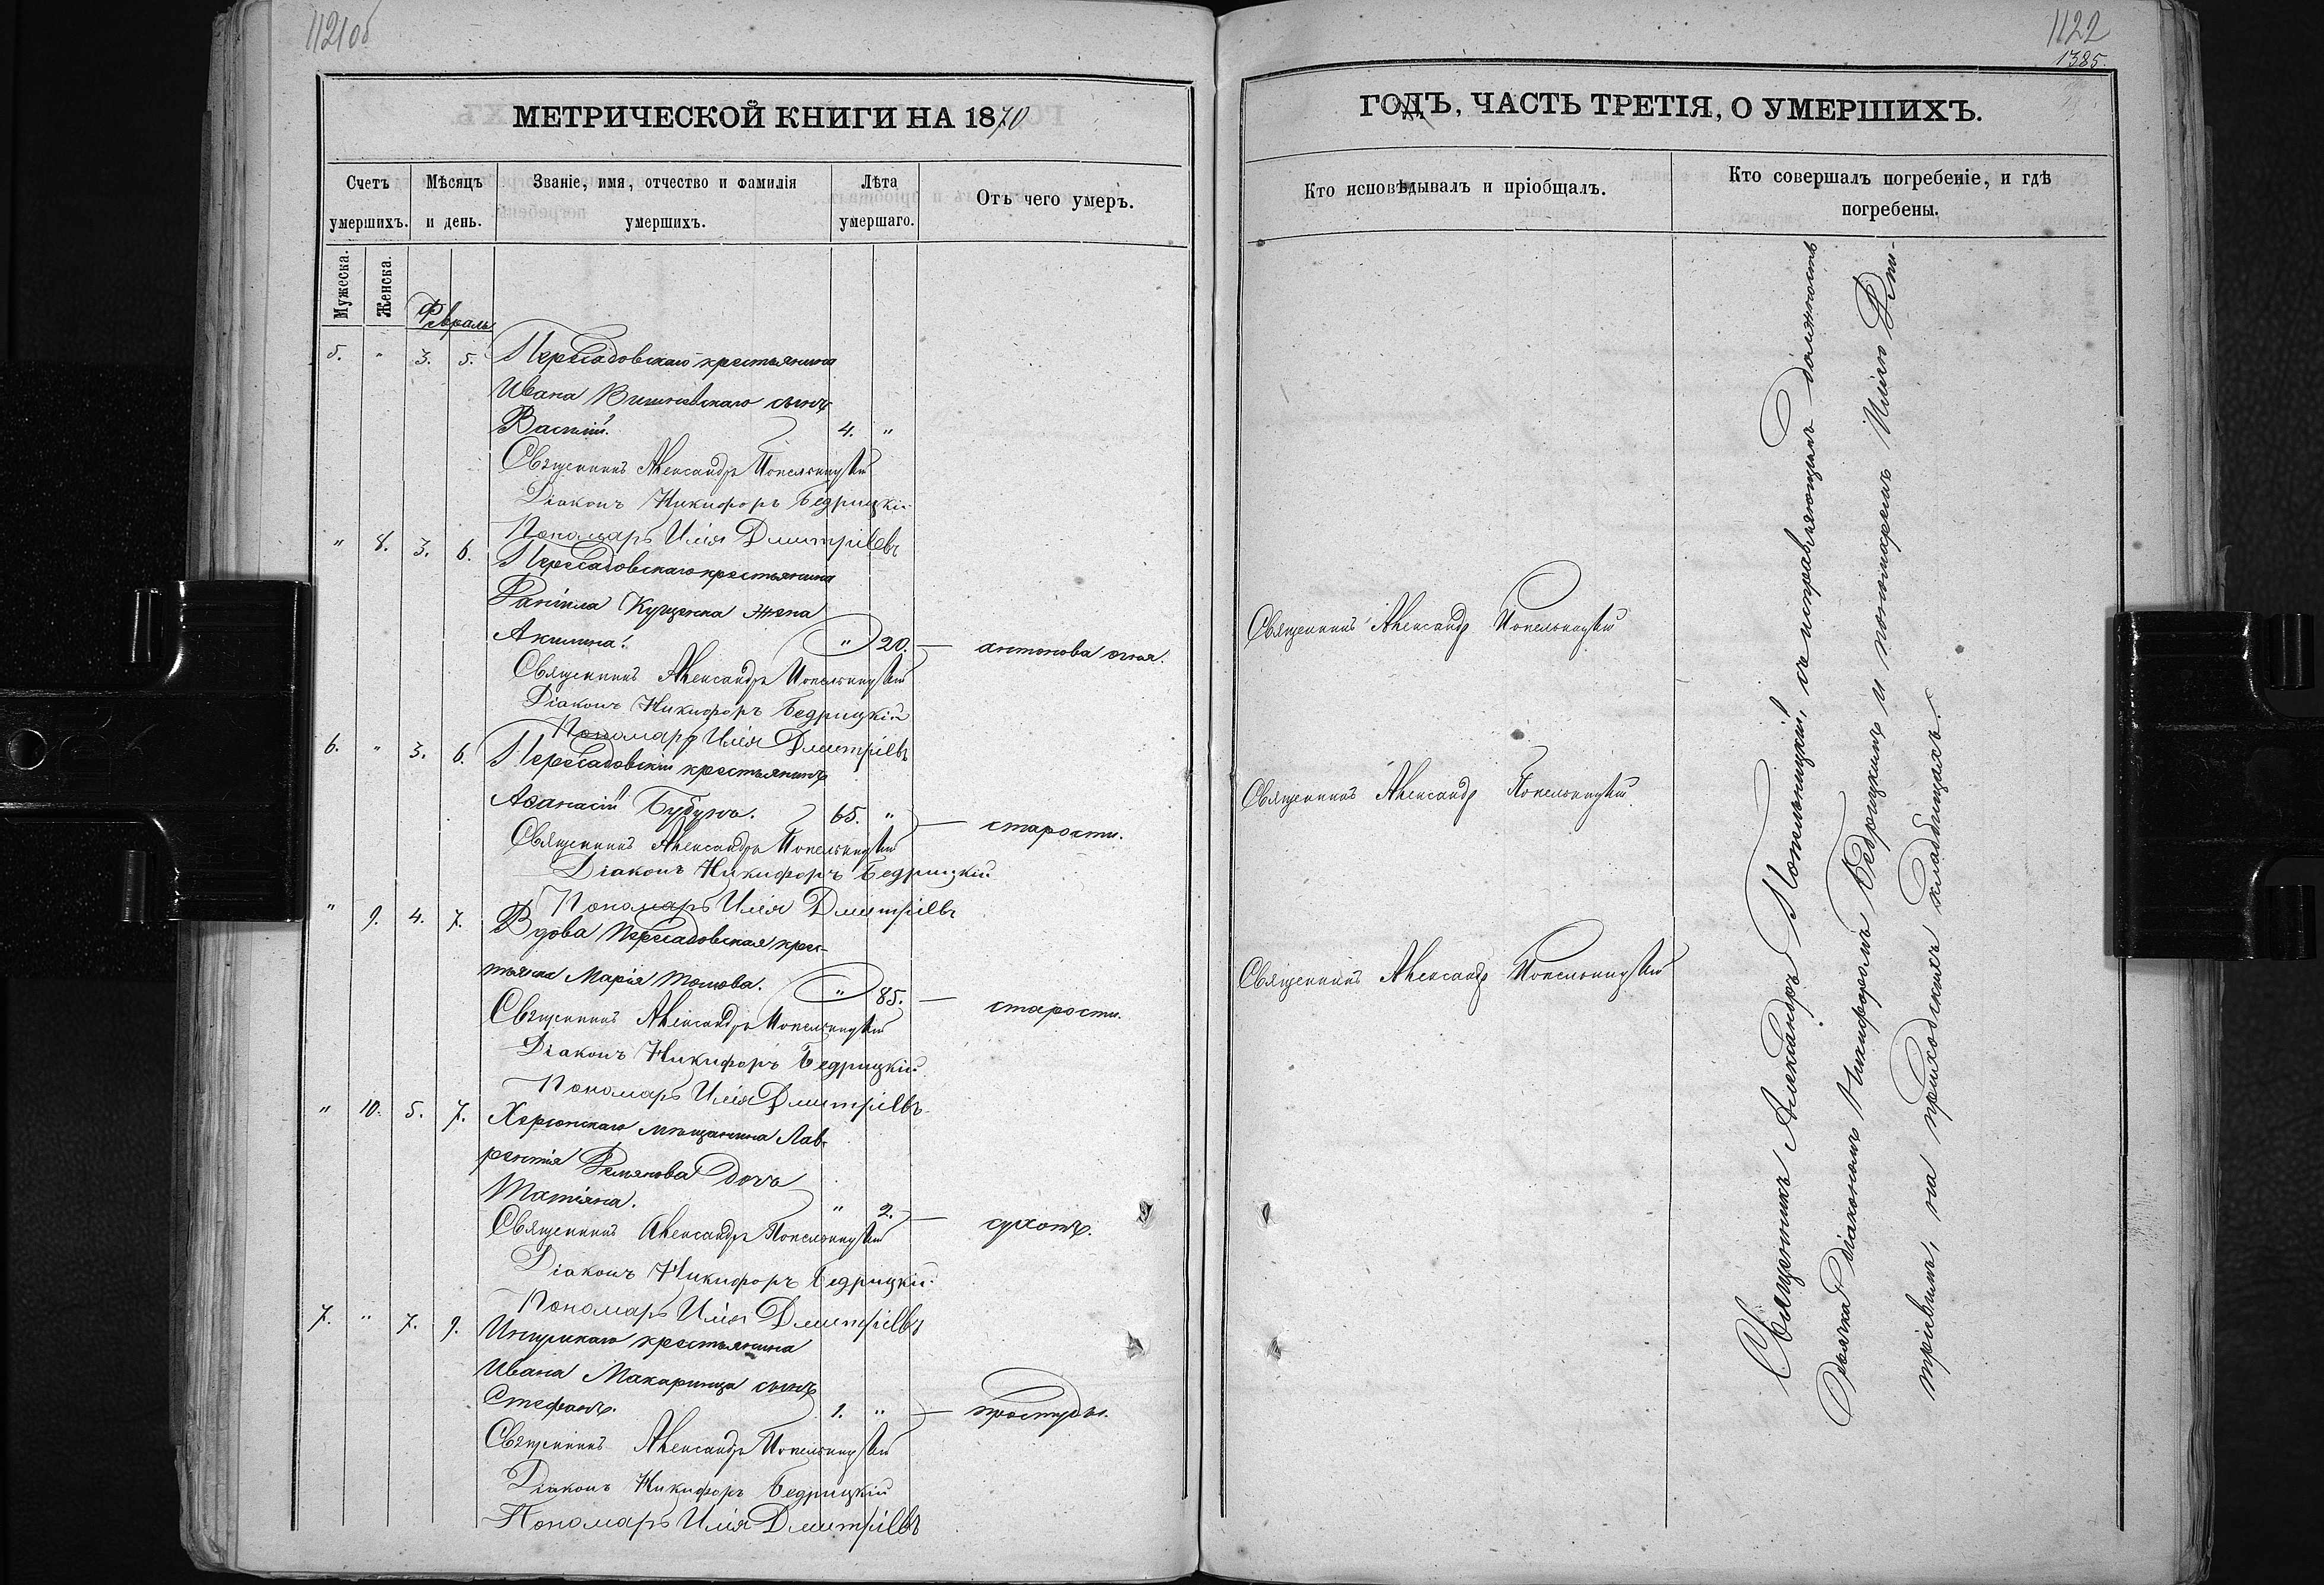 1121об
МЕТРИЧЕСКОЙ КНИГИ НА 1870
Счетъ умершихъ.
Мѣсяцъ и день.
Званіе, имя, отчество и фамилія умершихъ.
Лѣта умершаго.
Отъ чего умеръ.
Мужеска.
Женска.
Февраль
5. " 3. 5. Пересадовскаго крестьянина
Ивана Вишневскаго сынъ
Василій. 4. "
Священникъ Александръ Попельницкій
Діаконъ Никифоръ Бедрицкій
Пономарь Илія Дмитріевъ
" 8. 3. 6. Пересадовскаго крестьянина
Даніила Куценка жена
Акилина. " 20. — антонова огня.
Священникъ Александръ Попельницкій
Діаконъ Никифоръ Бедрицкій
Пономарь Илія Дмитріевъ
6. " 3. 6. Пересадовскій крестьянинъ
Аѳанасій 65. " — старости.
Священникъ Александръ Попельницкій
Діаконъ Никифоръ Бедрицкій
Пономарь Илія Дмитріевъ
" 9. 4. 7. Вдова Пересадовская крес-
тьянка Марія " 85. — старости.
Священникъ Александръ Попельницкій
Діаконъ Никифоръ Бедрицкій
Пономарь Илія Дмитріевъ
" 10. 5. 7. Херсонскаго мѣщанина Лав-
рентія дочь
Татіана. " 2. — сухотъ.
Священникъ Александръ Попельницкій
Діаконъ Никифоръ Бедрицкій
Пономарь Илія Дмитріевъ
7. " 7. 9. Ингульскаго крестьянина
Ивана Макаринца сынъ
Стефанъ. 1. " — простуды.
Священникъ Александръ Попельницкій
Діаконъ Никифоръ Бедрицкій
Пономарь Илія Дмитріевъ
1122
1385.
ГОДЪ, ЧАСТЬ ТРЕТІЯ, О УМЕРШИХЪ.
Кто исповѣдывалъ и пріобщалъ.
Кто совершалъ погребеніе, и гдѣ погребены.
Священникъ Александръ Попельницкій
Священникъ Александръ Попельницкій
Священникъ Александръ Попельницкій
Священникъ Александръ Попельницкій, съ исправляющимъ должность
дьячка діакономъ Никифоромъ Бедрицкимъ и пономаремъ Иліею Дми-
тріевымъ, на приходскихъ кладбищахъ.